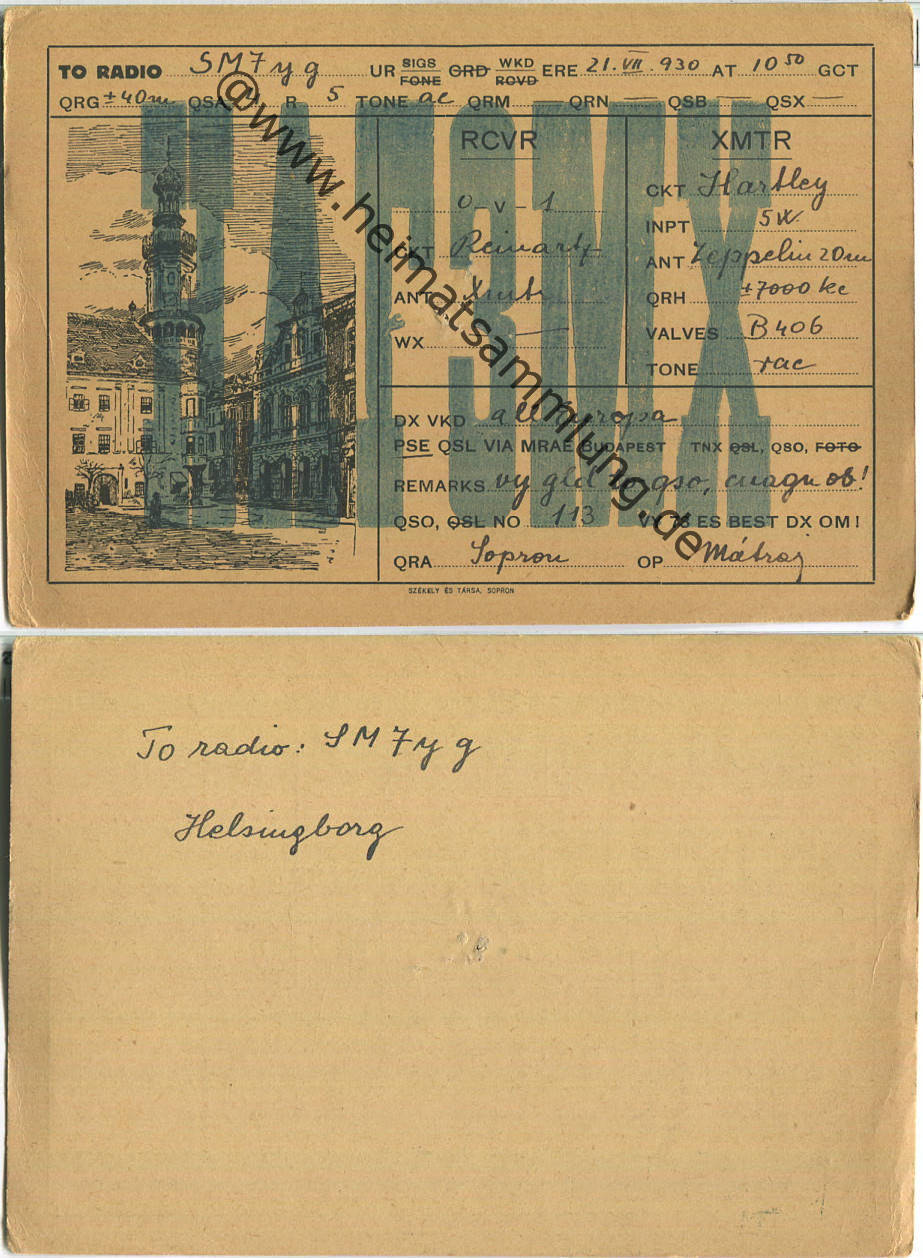 TO RADIO SM7yg UR SIGS FONE CRD WKD RCVD ERE 21.VII.930 AT 10 50 GCT
QRG ±40m QSA R 5 TONE ac QRM — QRN — QSB — QSX —
@www.heimatsammlung.de
RCVR
0-V-1
CKT Reinartz
ANT Xmtr
WX —
XMTR
CKT Hartley
INPT 5W
ANT Zeppelin 20m
QRH ±7000 kc
VALVES B406
TONE rac
DX VKD all Europa
PSE QSL VIA MRAE BUDAPEST TNX QSL, QSO, FOTO
REMARKS vy gld to qso, cuagn ob!
QSO, QSL NO 113 VY 73 ES BEST DX OM!
QRA Sopron OP Mátray
SZÉKELY ÉS TÁRSA, SOPRON
To radio: SM7yg
Helsingborg